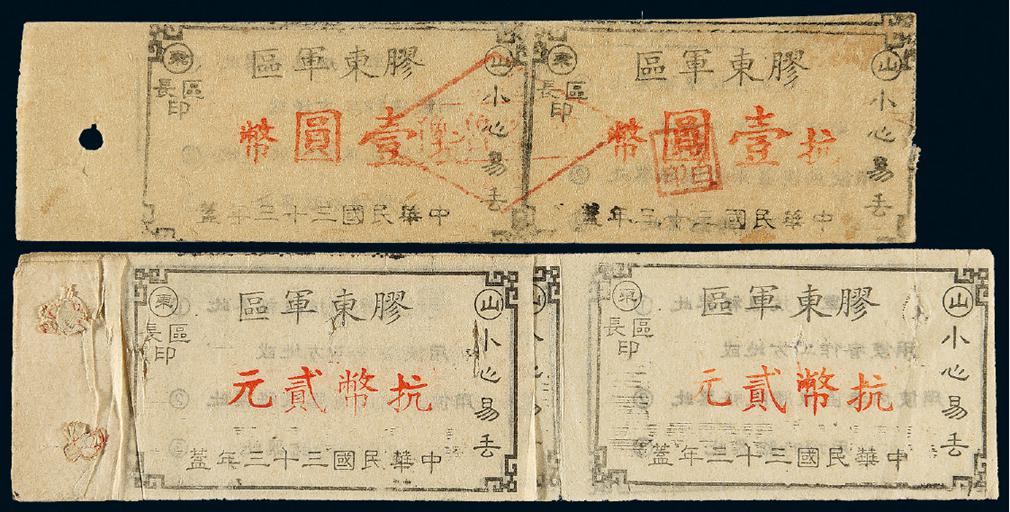 山 膠東軍區 東
區長印
小心易丟
抗壹圓幣
中華民國三十三年蓋
山 膠東軍區 東
區長印
小心易丟
壹圓幣
中華民國三十三年蓋
山 膠東軍區 東
區長印
小心易丟
抗幣貳元
中華民國三十三年蓋
山 膠東軍區 東
區長印
小心易丟
抗幣貳元
中華民國三十三年蓋